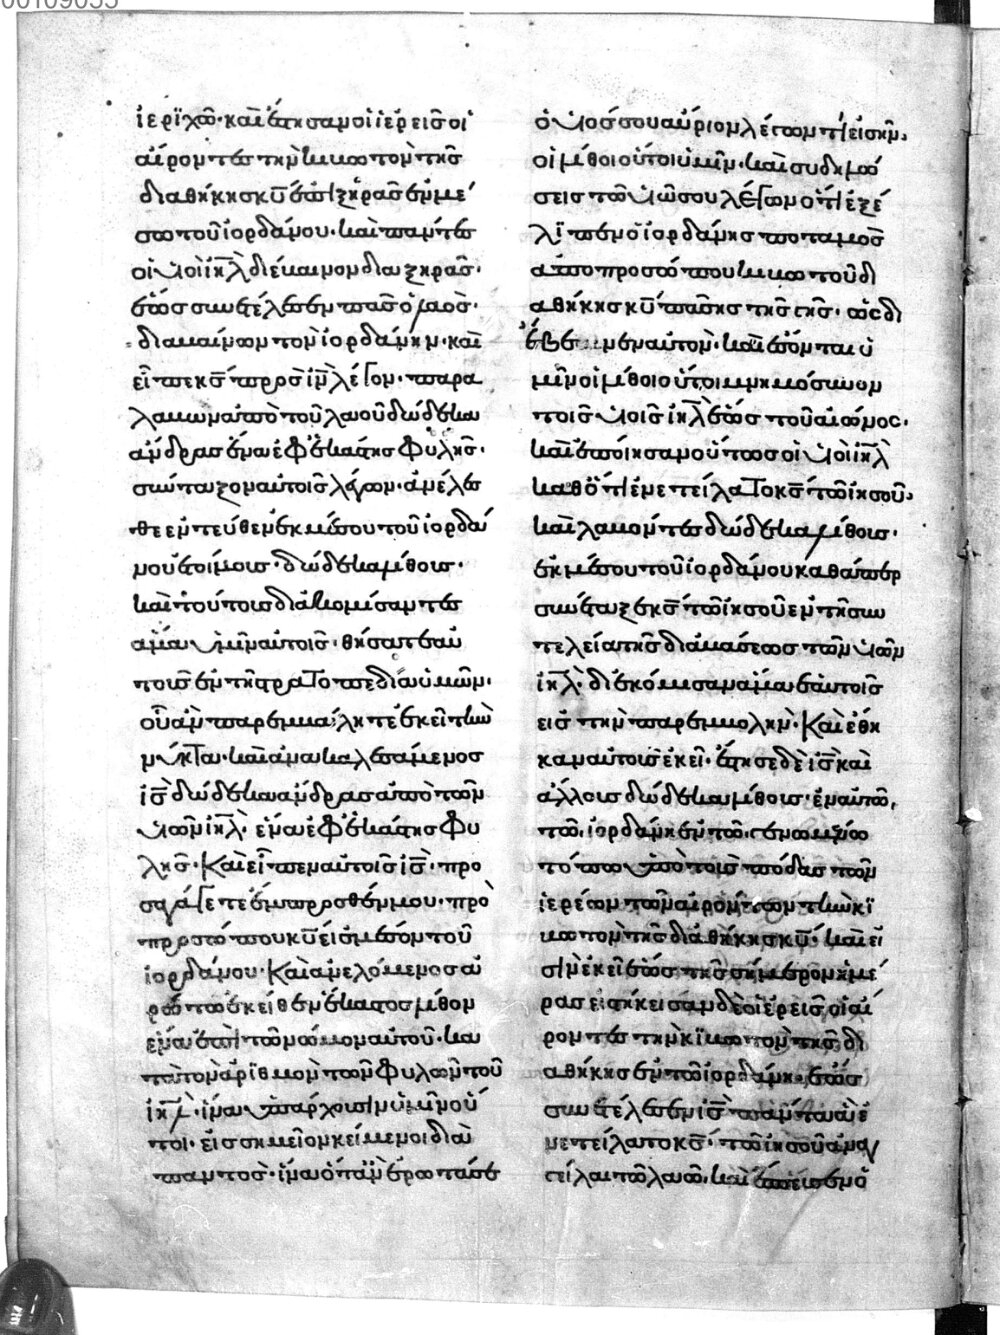 00109055
ἱεριχῶ· καὶ ἔστησαν οἱ ἱερεῖς οἱ
αἴροντες τὴν κιβωτὸν τῆς
διαθήκης κ̅υ̅ ἐπὶ ξηρᾶς ἐν μέ
σω τοῦ ἰορδάνου· καὶ πάντες
οἱ υἱοὶ ι̅η̅λ̅ διέβαινον διὰ ξηρᾶς·
ἕως συνετέλεσεν πᾶς ὁ λαὸς·
διαβαίνων τὸν ἰορδάνην· καὶ
εἶπε κ̅ς̅ πρὸς ι̅ν̅ λέγον· παρα
λαβὼν ἀπὸ τοῦ λαοῦ δώδεκα
ἄνδρας ἕνα ἐφ ἑκάστης φυλῆς·
σύνταξον αὐτοῖς λέγων· ἀνέλεσ
θε ἐντεύθεν ἐκ μέσου τοῦ ἰορδά
νου ἑτοίμους· δώδεκα λίθους·
καὶ τούτους διακομίσαντες
ἅμα ὑμῖν αὐτοῖς· θήσατε αὐ
τοὺς ἐν τῆ στρατοπεδία ὑμῶν·
οὗ ἂν παρεμβάλητε ἐκεῖ τὴν
νύκτα· καὶ ἀνακαλεσάμενος
ι̅ς̅ δώδεκα ἄνδρας ἀπὸ τῶν
υἱῶν ι̅η̅λ̅· ἕνα ἐφ ἑκάστης φυ
λῆς· καὶ εἶπεν αὐτοῖς ι̅ς̅· προ
σαγάγετε ἔμπροσθέν μου· πρὸ
προσώπου κ̅υ̅ εἰς μέσον τοῦ
ἰορδάνου· καὶ ἀνελόμενος ἀ
ράτω ἐκεῖθεν ἕκαστος λίθον
ἕνα ἐπὶ τῶν ὤμων αὐτοῦ· κα
τὰ τὸν ἀριθμὸν τῶν φυλῶν τοῦ
ι̅η̅λ̅· ἵνα ὑπάρχουσιν ὑμῖν οὗ
τοι· εἰς σημεῖον κείμενοι δια
παντὸς· ἵνα ὅταν ἐρωτάσε
ὁ υἱός σου αὔριον λέγων τί εἰσὶν
οἱ λίθοι οὗτοι ὑμῖν· καὶ σὺ δηλώ
σεις τῶ υἱῶ σου λέγων ὅτι ἐξέ
λιπεν ὁ ἰορδάνης ποταμὸς
ἀπὸ προσώπου κιβωτοῦ δι
αθήκης κ̅υ̅ πάσης τῆς γῆς· ὡς δι
έβαινεν αὐτὸν· καὶ ἔσονται ὑ
μῖν οἱ λίθοι οὗτοι μνημόσυνον
τοῖς υἱοῖς ι̅η̅λ̅ ἕως τοῦ αἰῶνος·
καὶ ἐποίησαν οὕτως οἱ υἱοὶ ι̅η̅λ̅
καθότι ἐνετείλατο κ̅ς̅ τῶ ἰησοῦ·
καὶ λαβόντες δώδεκα λίθους·
ἐκ μέσου τοῦ ἰορδάνου καθάπερ
συνέταξε κ̅ς̅ τῶ ἰησοῦ ἐν τῆ συν
τελεία τῆς διαβάσεως τῶν υἱῶν
ι̅η̅λ̅· διεκόμισαν ἅμα ἑαυτοῖς
εἰς τὴν παρεμβολὴν· καὶ ἔθη
καν αὐτοὺς ἐκεῖ· ἔστησε δὲ ι̅ς̅ καὶ
ἄλλους δώδεκα λίθους· ἐν αὐτῶ
τῶ ἰορδάνη ἐν τῶ γενομένω
τόπω ὑπὸ τοὺς πόδας τῶν
ἱερέων τῶν αἱρόντων τὴν κι
βωτὸν τῆς διαθήκης κ̅υ̅· καὶ εἰ
σὶν ἐκεῖ ἕως τῆς σήμερον ἡμέ
ρας εἱστήκεισαν δὲ οἱ ἱερεῖς οἱ αἴ
ροντες τὴν κιβωτὸν τῆς δι
αθήκης ἐν τῶ ἰορδάνη· ἕως
συνετέλεσεν ι̅ς̅ πάντα ἃ ἐ
νετείλατο κ̅ς̅· τῶ ἰησοῦ ἀναγ
γεῖλαι τῶ λαῶ· καὶ